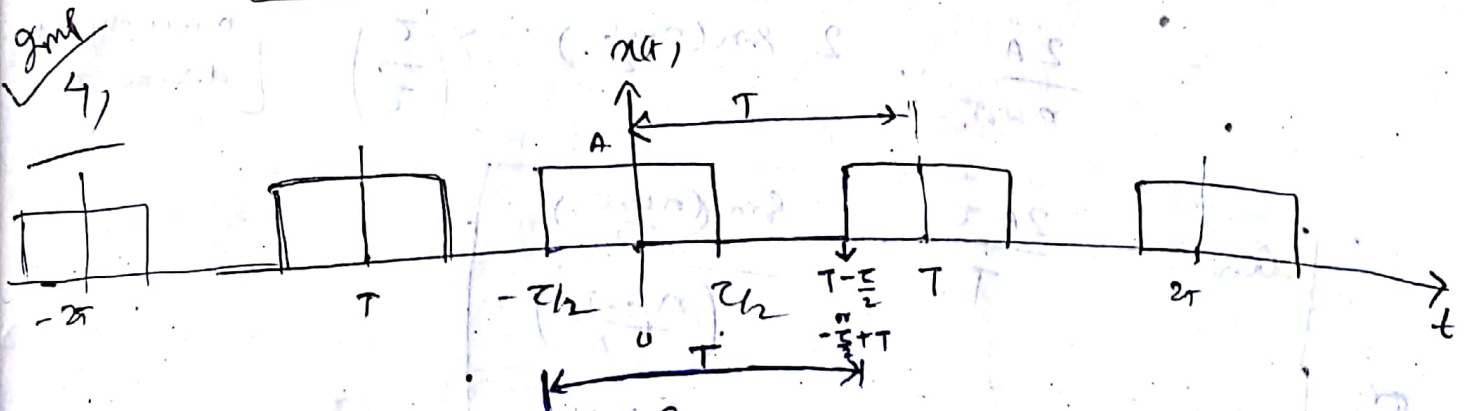 Imp
4,
x(t)
T
A
-2T
T
-τ/2
0
τ/2
T-τ/2
or
-τ/2+T
T
2T
t
T